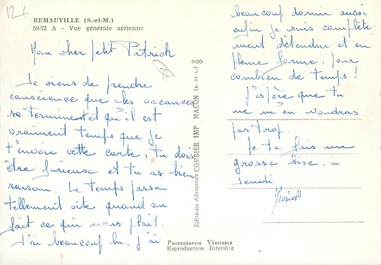 12 €
REMAUVILLE (S.-et-M.)
59-72 A - Vue générale aérienne
Mon cher petit Patrick
Je viens de prendre
conscience que les vacances
se terminent et qu'il est
vraiment temps que je
t'envoie cette carte. tu dois
être furieuse et tu as bien
raison. Le temps passe
tellement vite quand on
fait ce qui nous plait.
J'ai beaucoup lu, j'ai
Editions Aériennes COMBIER IMP. MACON (S.-et-L.)
PHOTOGRAPHIE VÉRITABLE
Reproduction Interdite
beaucoup dormi aussi
enfin je suis complète
ment détendue et en
pleine forme. pour
combien de temps !
J'espère que tu
ne m'en voudras
pas trop.
Je te fais une
grosse bise. à
jeudi